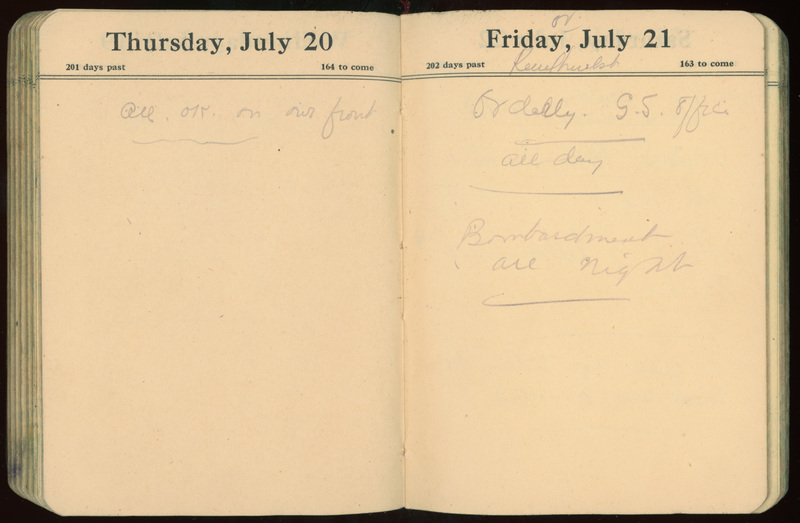 Thursday, July 20
201 days past 164 to come
all. OK. on our front
Friday, July 21
202 days past 163 to come
G.S. Office
all day
Bombardment
all night